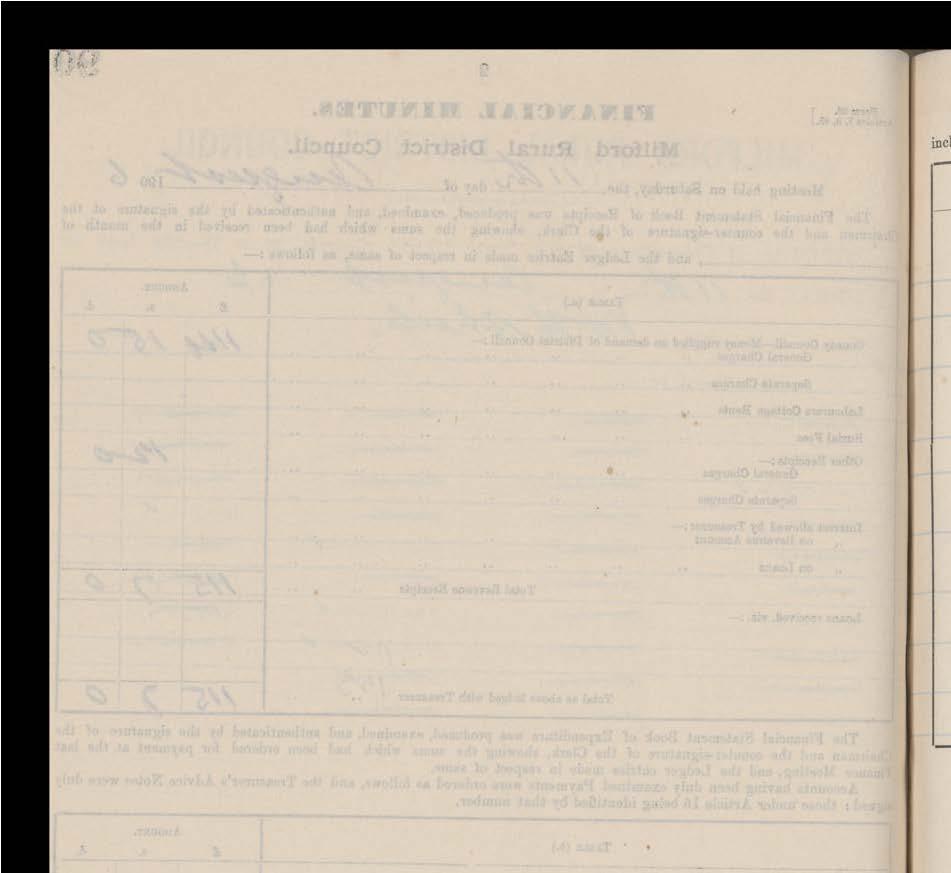 90
2
FINANCIAL MINUTES.
Milford Rural District Council.
Meeting held on Saturday, the 11th day of August 190 6
The Financial Statement Book of Receipts was produced, examined, and authenticated by the signature of the
Chairman and the counter-signature of the Clerk, showing the sums which had been received in the month of
, and the Ledger Entries made in respect of same, as follows :—
TITLES (a.)
AMOUNT.
£ s. d.
County Council—Money supplied on demand of District Council :—
General Charges
Separate Charges
Labourers Cottage Rents
Burial Fees
Other Receipts :—
General Charges
Separate Charges
Interest allowed by Treasurer :—
„ on Revenue Amount
„ on Loans
Total Revenue Receipts 115 7 0
Loans received, viz. :—
Total as above lodged with Treasurer 115 7 0
The Financial Statement Book of Expenditure was produced, examined, and authenticated by the signature of the
Chairman and the counter-signature of the Clerk, showing the sums which had been ordered for payment at the last
Finance Meeting, and the Ledger entries made in respect of same.
Accounts having been duly examined Payments were ordered as follows, and the Treasurer's Advice Notes were duly
signed : those under Article 16 being identified by that number.
TITLES (b.)
AMOUNT.
£ s. d.
incl